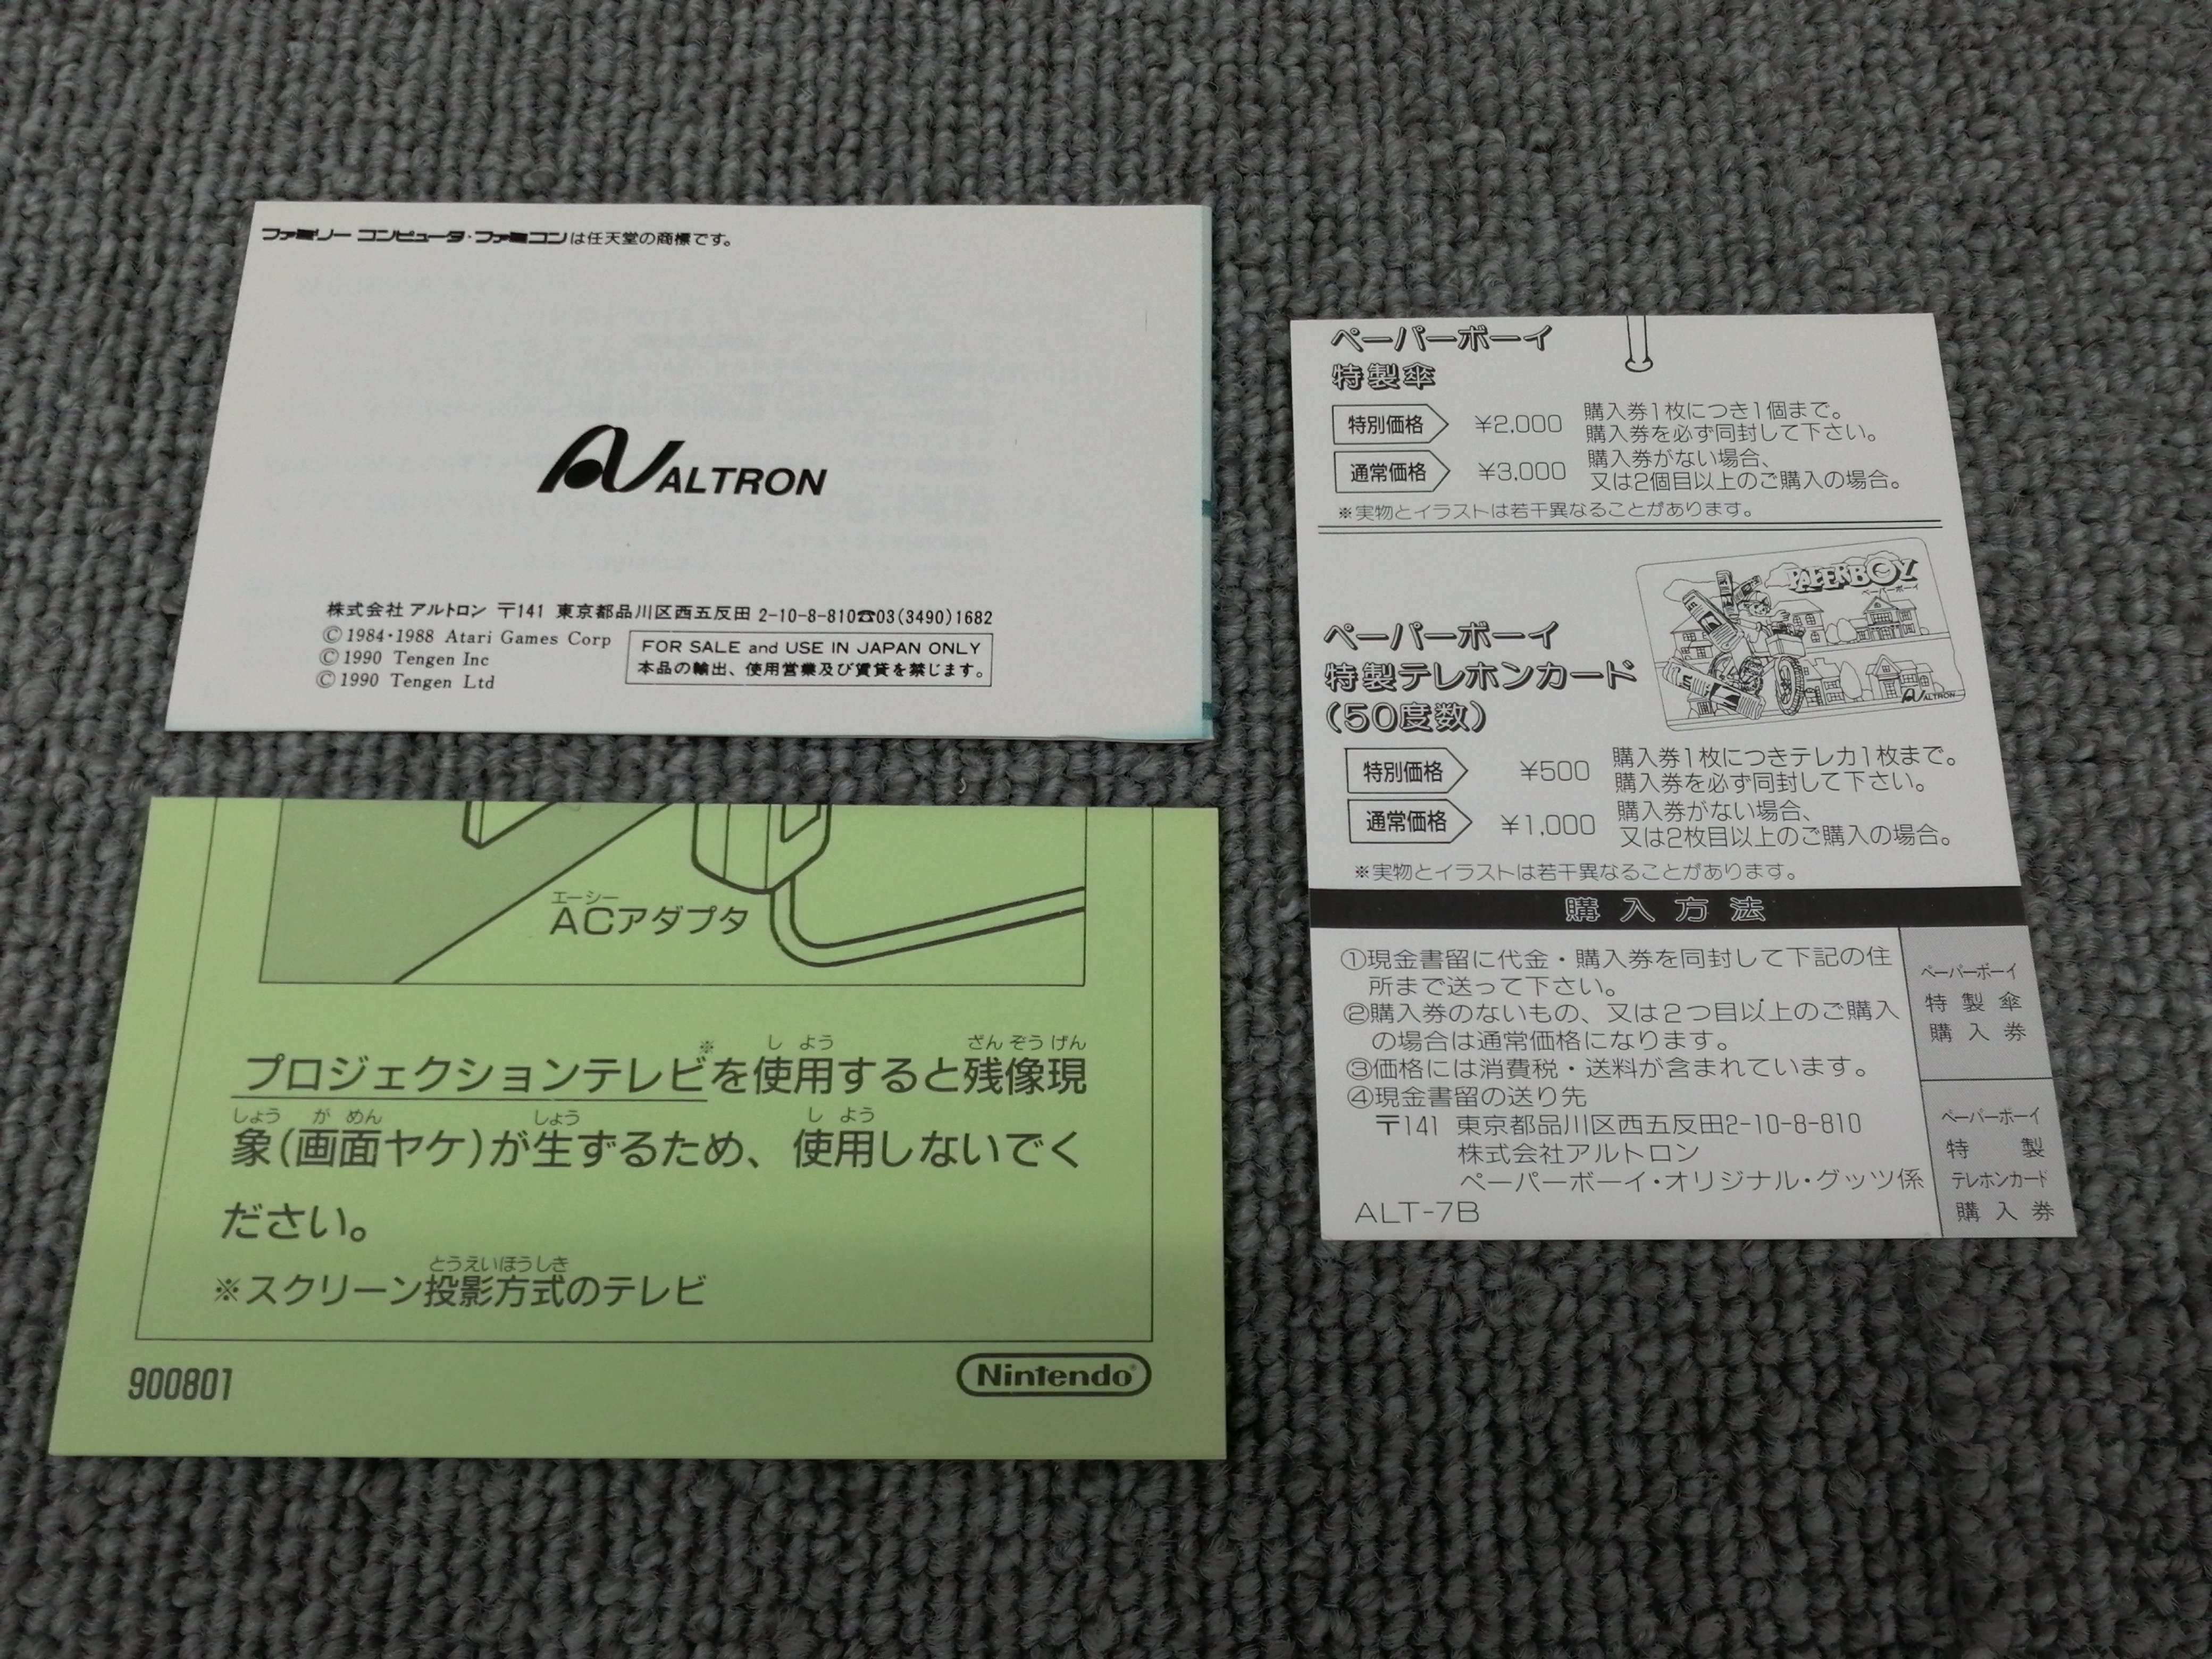 ファミリー コンピュータ・ファミコンは任天堂の商標です。
ALTRON
株式会社 アルトロン 〒141 東京都品川区西五反田 2-10-8-810☎03(3490)1682
©1984・1988 Atari Games Corp
©1990 Tengen Inc
©1990 Tengen Ltd
FOR SALE and USE IN JAPAN ONLY
本品の輸出、使用営業及び賃貸を禁じます。
エーシー
ACアダプタ
しよう ざんぞうげん
プロジェクションテレビ※を使用すると残像現
しょう がめん しょう しよう
象(画面ヤケ)が生ずるため、使用しないでく
ださい。
とうえいほうしき
※スクリーン投影方式のテレビ
900801
Nintendo®
ペーパーボーイ
特製傘
特別価格 ¥2,000 購入券1枚につき1個まで。
購入券を必ず同封して下さい。
通常価格 ¥3,000 購入券がない場合、
又は2個目以上のご購入の場合。
※実物とイラストは若干異なることがあります。
PAPERBOY
ペーパーボーイ
ALTRON
ペーパーボーイ
特製テレホンカード
(50度数)
特別価格 ¥500 購入券1枚につきテレカ1枚まで。
購入券を必ず同封して下さい。
通常価格 ¥1,000 購入券がない場合、
又は2枚目以上のご購入の場合。
※実物とイラストは若干異なることがあります。
購入方法
①現金書留に代金・購入券を同封して下記の住
所まで送って下さい。
②購入券のないもの、又は2つ目以上のご購入
の場合は通常価格になります。
③価格には消費税・送料が含まれています。
④現金書留の送り先
〒141 東京都品川区西五反田2-10-8-810
株式会社アルトロン
ペーパーボーイ・オリジナル・グッツ係
ALT-7B
ペーパーボーイ
特製傘
購入券
ペーパーボーイ
特製
テレホンカード
購入券